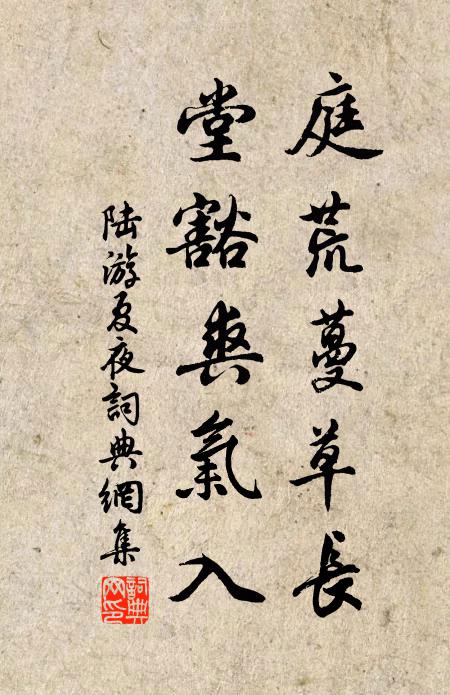 庭荒蔓草長
堂豁爽氣入
陸游夏夜詞典網集
詞典網印